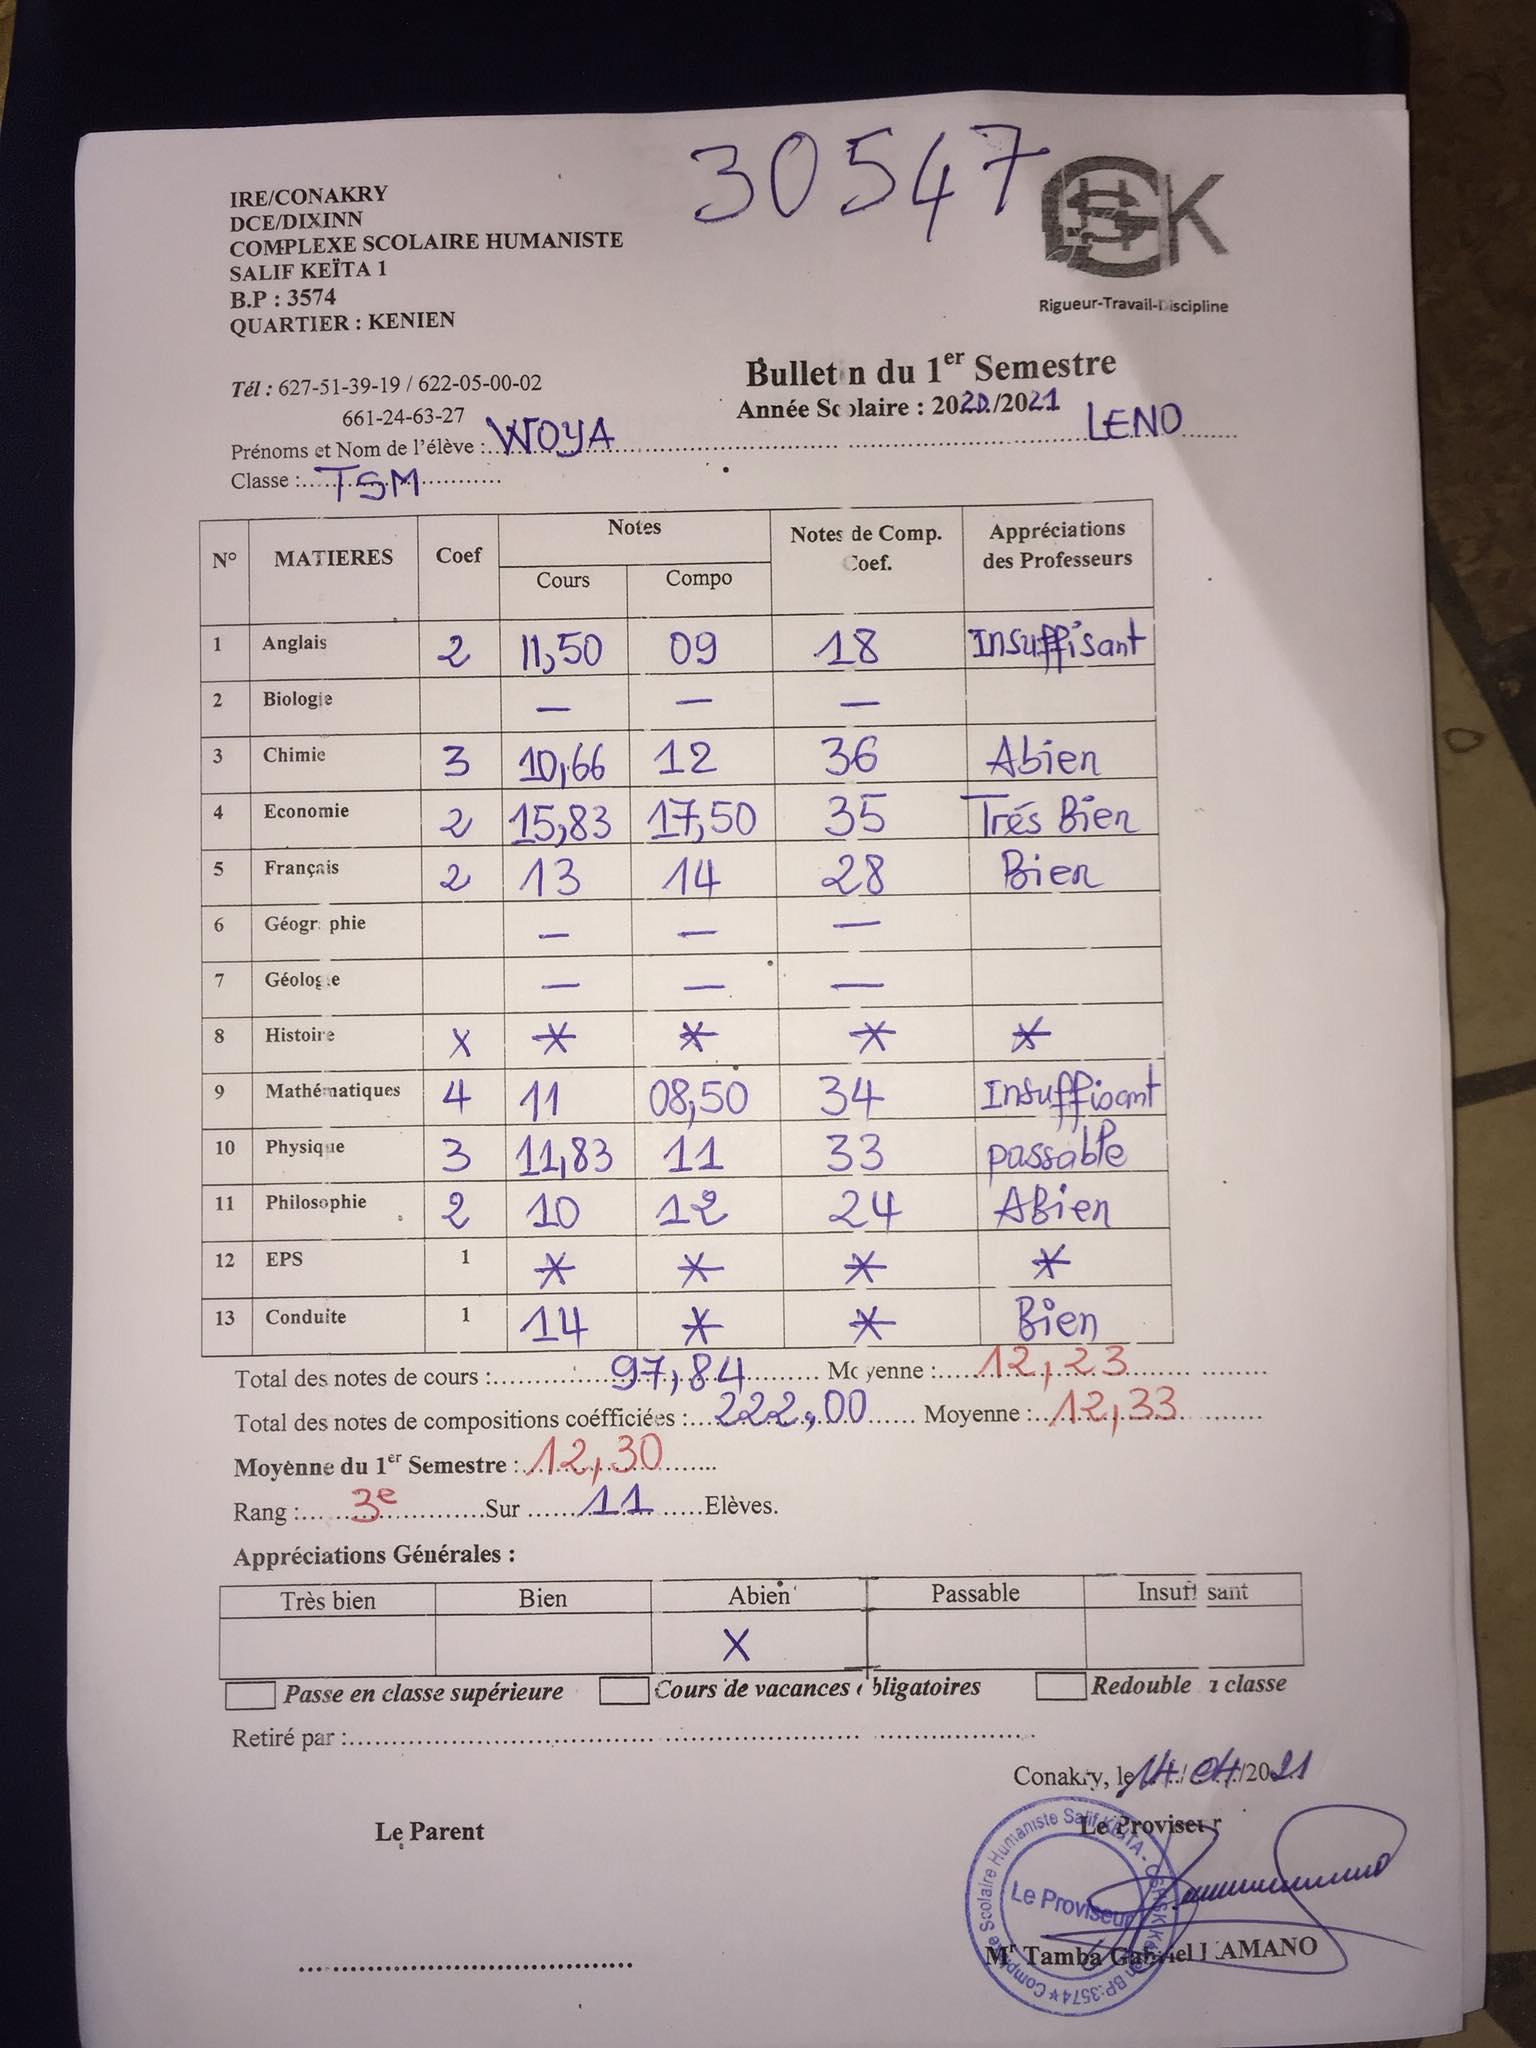 30547
IRE/CONAKRY
DCE/DIXINN
COMPLEXE SCOLAIRE HUMANISTE
SALIF KEÏTA 1
B.P : 3574
QUARTIER : KENIEN
CHSK
Rigueur-Travail-Discipline
Tél : 627-51-39-19 / 622-05-00-02
661-24-63-27
Bulletin du 1er Semestre
Année Scolaire : 2020/2021
Prénoms et Nom de l'élève : WOYA LENO
Classe : TSM
N° MATIERES Coef Notes Notes de Comp. Coef. Appréciations des Professeurs
Cours Compo
1 Anglais 2 11,50 09 18 Insuffisant
2 Biologie — — —
3 Chimie 3 10,66 12 36 Abien
4 Economie 2 15,83 17,50 35 Trés Bien
5 Français 2 13 14 28 Bien
6 Géographie — — —
7 Géologie — — —
8 Histoire X * * * *
9 Mathématiques 4 11 08,50 34 Insuffisant
10 Physique 3 11,83 11 33 passable
11 Philosophie 2 10 12 24 Abien
12 EPS 1 * * * *
13 Conduite 1 14 * * Bien
Total des notes de cours : 97,84 Moyenne : 12,23
Total des notes de compositions coéfficiées : 222,00 Moyenne : 12,33
Moyenne du 1er Semestre : 12,30
Rang : 3e Sur 11 Elèves.
Appréciations Générales :
Très bien Bien Abien Passable Insuffisant
X
Passe en classe supérieure Cours de vacances obligatoires Redouble la classe
Retiré par :
Conakry, le 14/04/2021
Le Parent Le Proviseur
Complexe Scolaire Humaniste Salif KEITA - Kénien BP:3574
Le Proviseur
Mr Tamba Gabriel KAMANO